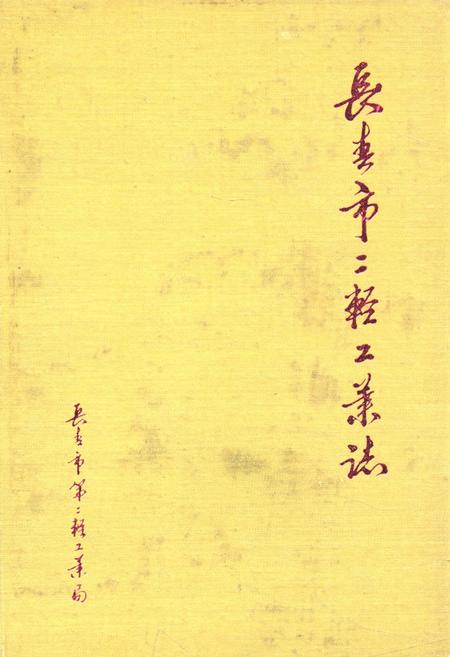 長春市二輕工業誌
長春市第二輕工業局